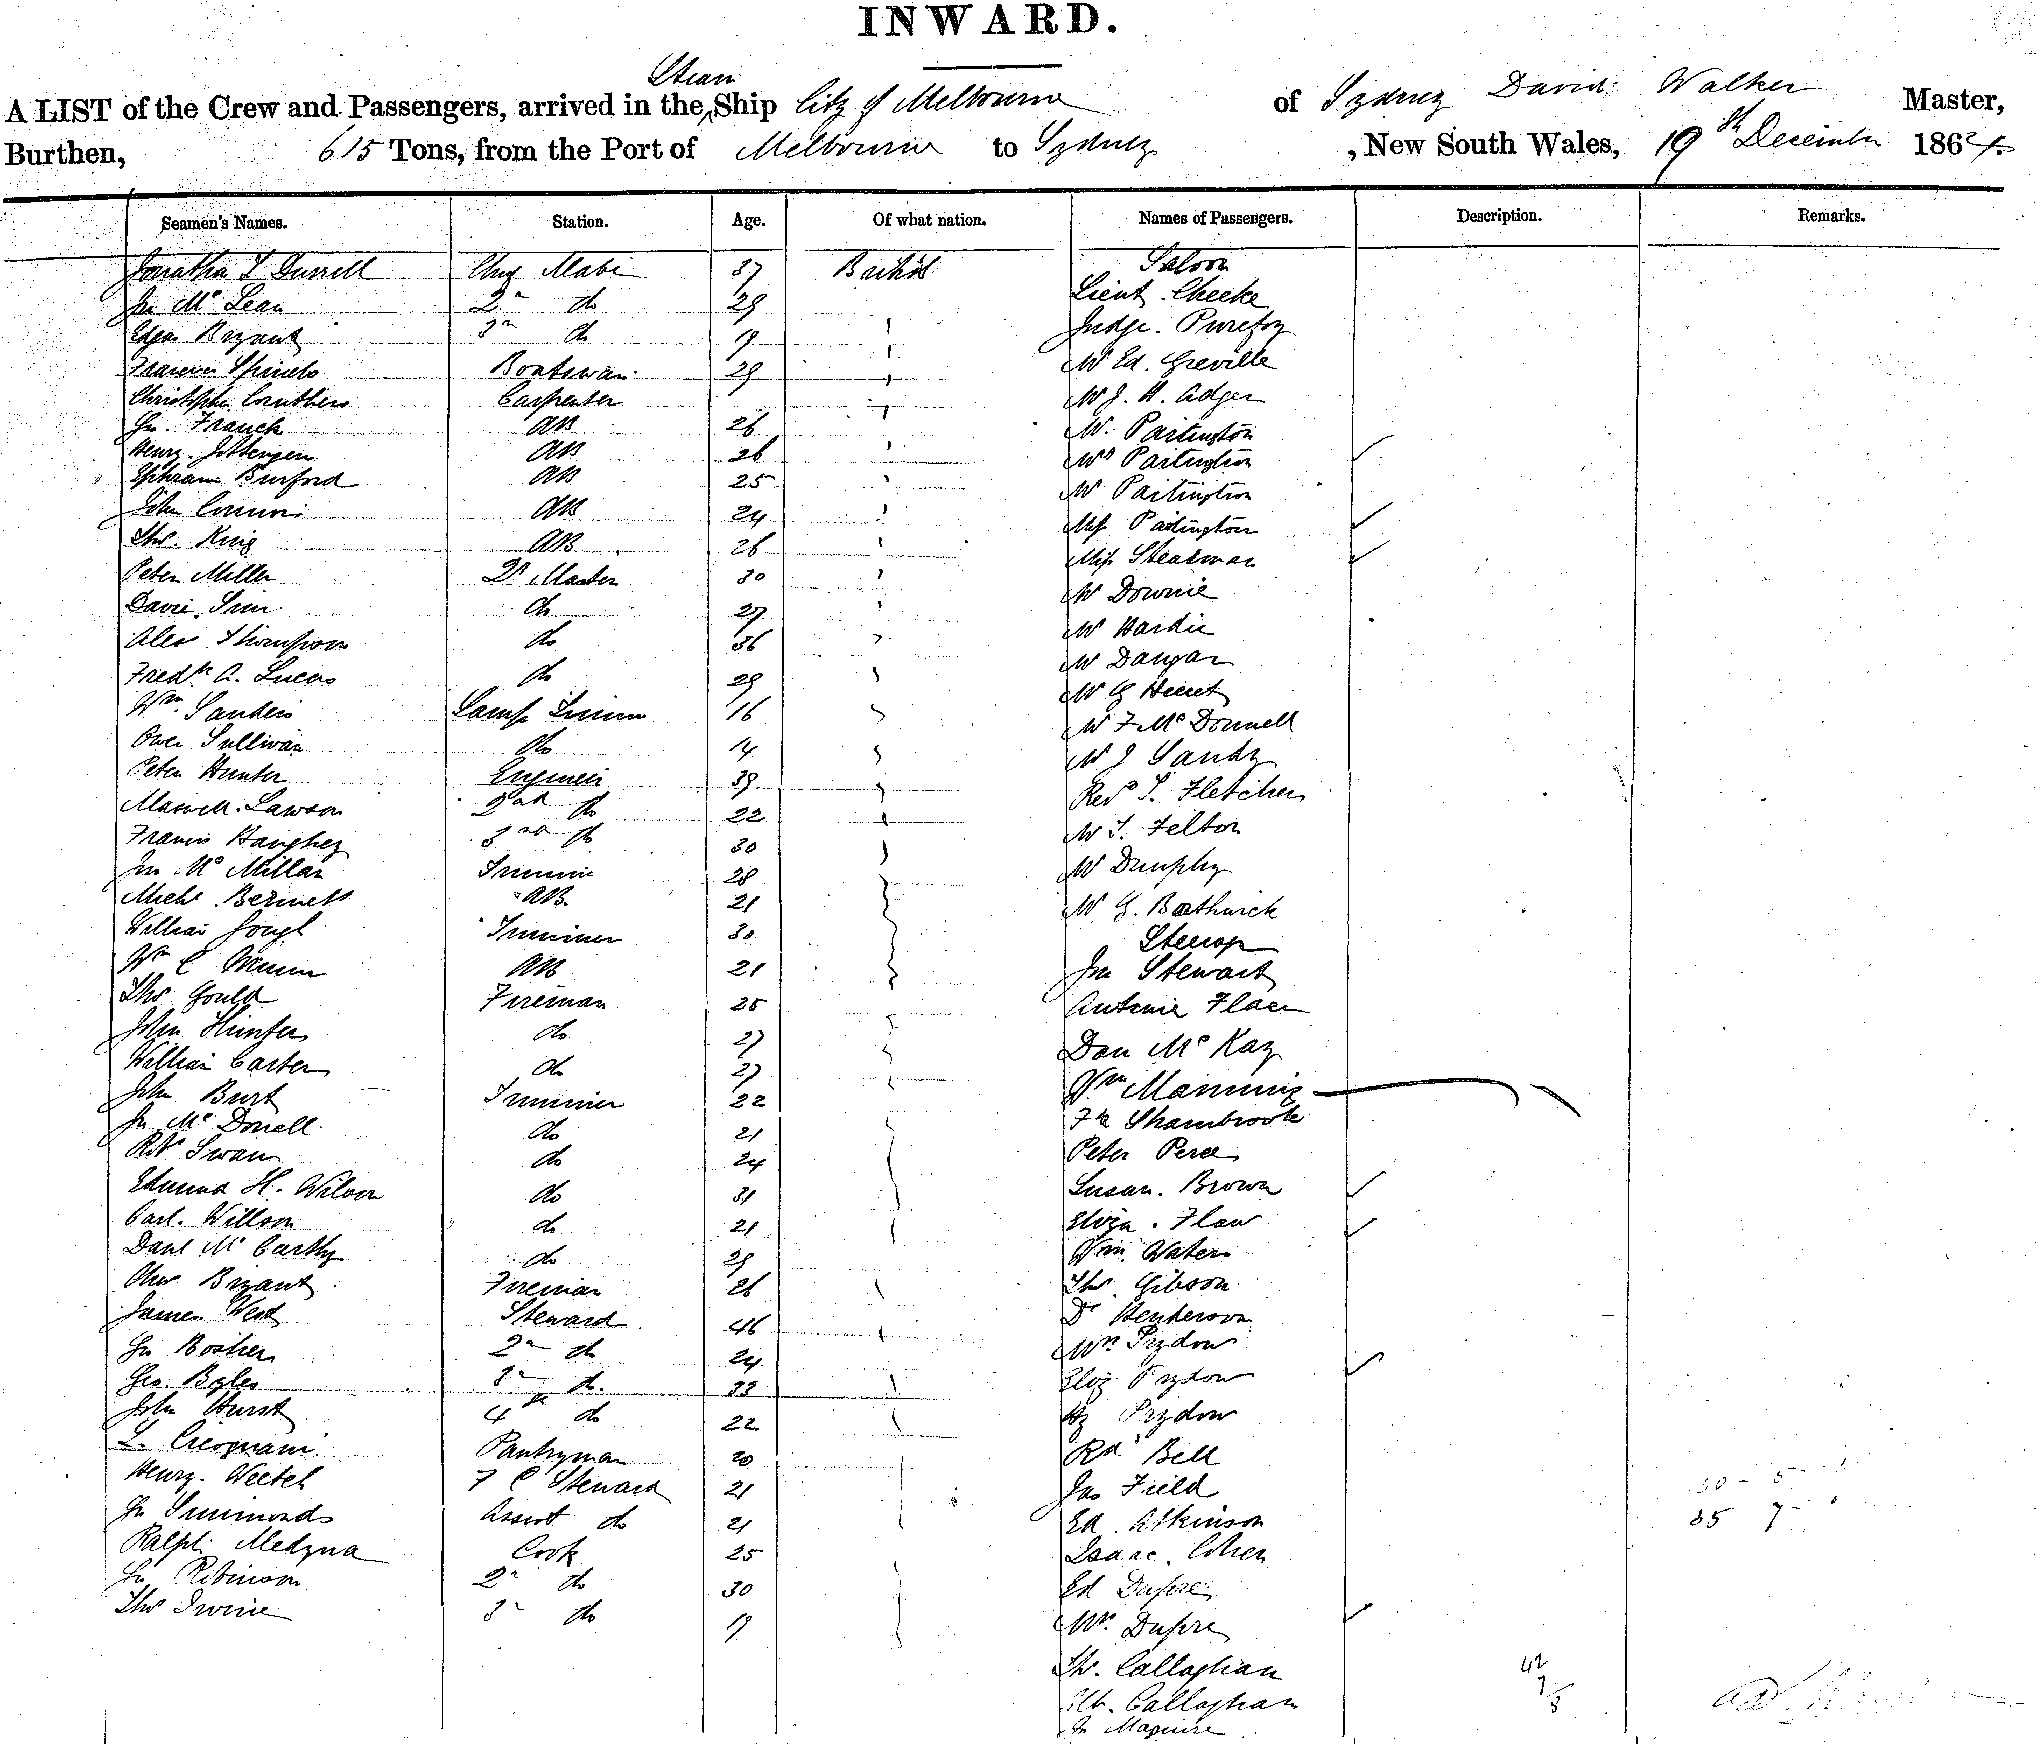 INWARD.
Steam
A LIST of the Crew and Passengers, arrived in the Ship City of Melbourne of Sydney David Walker Master,
Burthen, 615 Tons, from the Port of Melbourne to Sydney, New South Wales, 19th December 1864
Seamen's Names. Station. Age. Of what nation. Names of Passengers. Description. Remarks.
Saloon
Jonathan T Durrell Chief Mate 37 British
Lieut. Cheeke
Jn McLean 2n do 29
Judge. Purefoy
Edgar Bryant 3n do 19
Mr Ed. Greville
Boatswain 29
Mr J. H. Adger
Christopher Cruthers Carpenter
Mr. Partington
Jn. Franck AB 26
Mrs Partington
Henry AB 26
Mr Partington
Ephraim Burford AB 25
Miss Partington
John AB 24
Miss Steadman
Thos. King AB 26
Mr Downie
Peter Miller Qr Master 30
Mr Hardie
David Sim do 27
Mr Dangar
Alex Thompson do 36
Mr G
Fredk A. Lucas do 29
Mr F McDonnell
Wm Sanders Lamp Trimmer 16
Mr J Sandy
Owen Sullivan do 14
Revd T. Fletcher
Peter Hunter Engineer 39
Mr T. Felton
Maxwell Lawson 2nd do 22
Mr Dunphy
Francis Haughey 3rd do 30
Mr G. Borthwick
Jn McMillan Trimmer 28
Steerage
Michl Bennett AB 21
Jn Stewart
William Trimmer 30
Antonie
Wm C AB 21
Dan McKay
Thos Gould Fireman 25
Wm Manning
John Hunter do 27
Fk Shambrook
William Carter do 27
Peter
John Burt Trimmer 22
Susan. Brown
Jn McDonell do 21
Eliza. Flaw
Rbt Swan do 24
Wm. Waters
Edmund H. Wilson do 31
Thos Gibson
Carl. Willson do 21
Dr Henderson
Danl McCarthy do 29
Mrs Prydon
Chas Bryant Fireman 26
Eliz Prydon
James West Steward 46
Hy Prydon
Jn Bosher 2n do 24
Rd Bell
Geo. Bales 3n do. 33
Jas Field
John Hurst 4th do 22
Ed. Atkinson
Pantryman 20
Isaac. Cohen
Henry. F C Steward 21
Ed Dupre
Jn Simmonds Assist do 21
Mrs. Dupre
Ralph Cook 25
Th. Callaghan
Jn Robinson 2n do 30
Callaghan
Thos Irvine 3n do 19
Jn Maguire